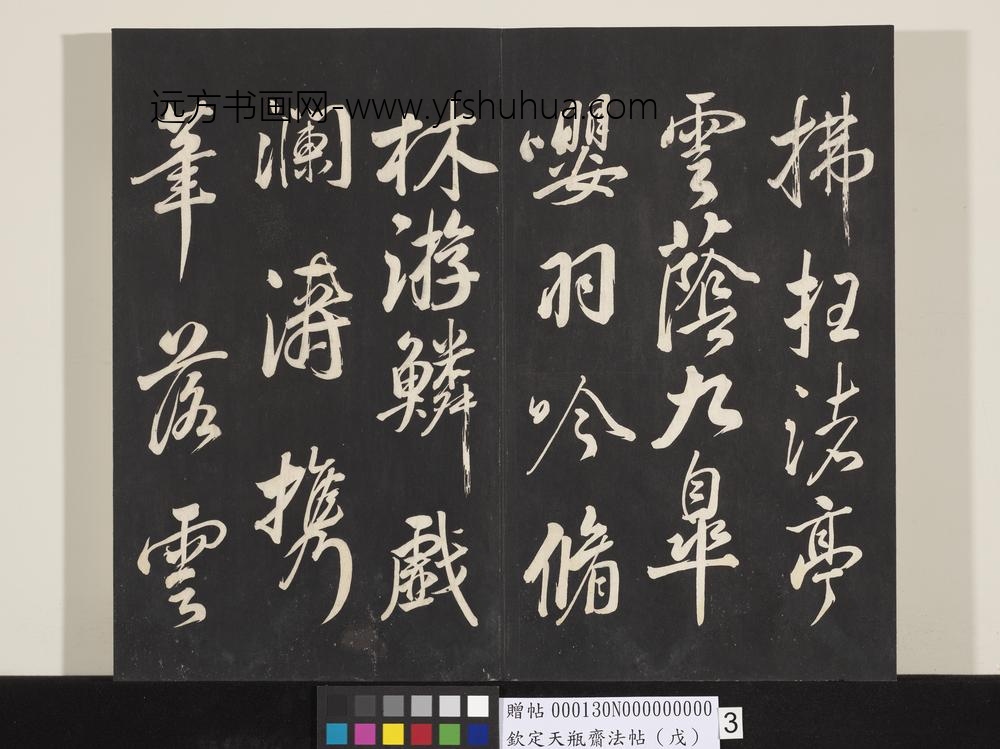 远方书画网-www.yfshuhua.com
拂枉渚亭
雲蔭九皐
嚶羽吟脩
林游鱗戲
瀾濤携
筆落雲
贈帖 000130N000000000
欽定天瓶齋法帖（戊）
3